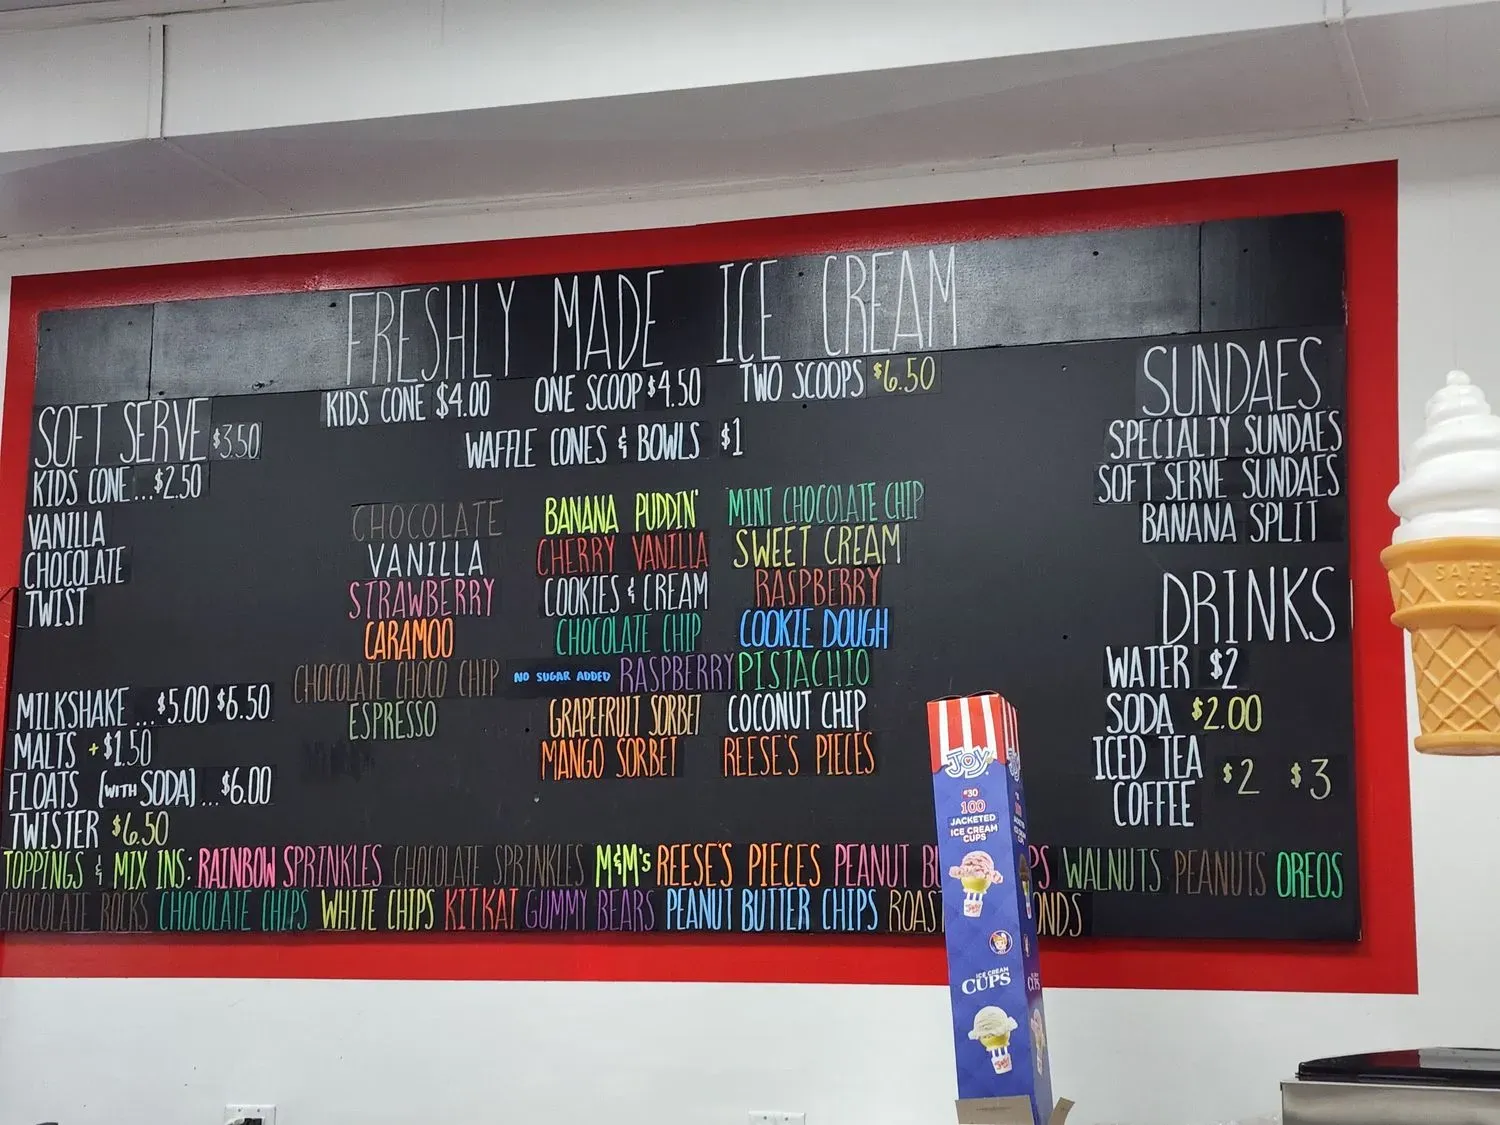 FRESHLY MADE ICE CREAM
KIDS CONE $4.00 ONE SCOOP $4.50 TWO SCOOPS $6.50
WAFFLE CONES & BOWLS $1
SOFT SERVE $3.50
KIDS CONE...$2.50
VANILLA
CHOCOLATE
TWIST
MILKSHAKE ...$5.00 $6.50
MALTS +$1.50
FLOATS (WITH SODA)...$6.00
TWISTER $6.50
CHOCOLATE
VANILLA
STRAWBERRY
CARAMOO
CHOCOLATE CHOCO CHIP
ESPRESSO
BANANA PUDDIN'
CHERRY VANILLA
COOKIES & CREAM
CHOCOLATE CHIP
NO SUGAR ADDED RASPBERRY
GRAPEFRUIT SORBET
MANGO SORBET
MINT CHOCOLATE CHIP
SWEET CREAM
RASPBERRY
COOKIE DOUGH
PISTACHIO
COCONUT CHIP
REESE'S PIECES
SUNDAES
SPECIALTY SUNDAES
SOFT SERVE SUNDAES
BANANA SPLIT
DRINKS
WATER $2
SODA $2.00
ICED TEA
COFFEE $2 $3
TOPPINGS & MIX INS: RAINBOW SPRINKLES CHOCOLATE SPRINKLES M&M's REESE'S PIECES PEANUT WALNUTS PEANUTS OREOS
CHOCOLATE ROCKS CHOCOLATE CHIPS WHITE CHIPS KITKAT GUMMY BEARS PEANUT BUTTER CHIPS
JOY
#30
100
JACKETED
ICE CREAM
CUPS
ICE CREAM
CUPS